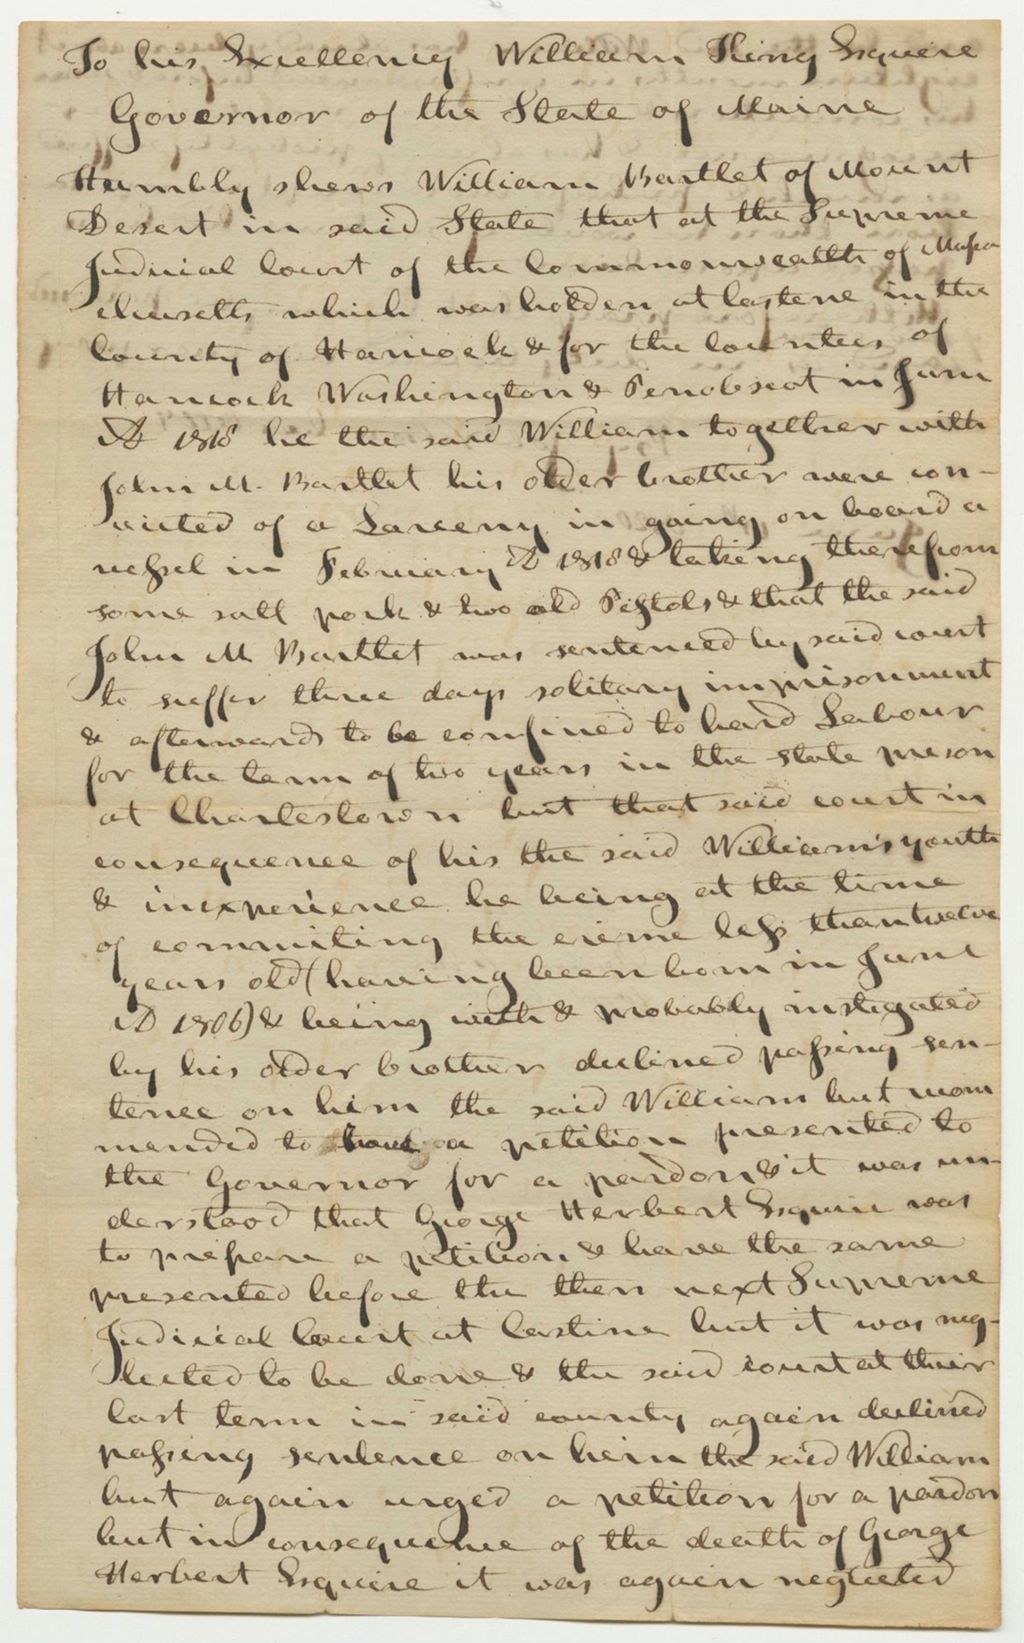 To his Excellency William King Esquire
Governor of the State of Maine
Humbly shews William Bartlet of Mount
Desert in said State that at the Supreme
Judicial Court of the Commonwealth of Massa
chusetts which was holden at Castene in the
County of Hancock & for the Counties of
Hancock Washington & Penobscot in June
AD 1818 he the said William together with
John M. Bartlet his older brother were con-
victed of a Larceny in going on board a
vessel in February AD 1818 & takeng therefrom
some salt pork & two old Pistols & that the said
John M Bartlet was sentenced by said court
to suffer three days solitary imprisonment
& afterwards to be confined to hard Labour
for the term of two years in the state preson
at Charlestown but that said court in
consequence of his the said William's youth
& inexperience he being at the time
of commiting the creme less than twelve
years old (having been born in June
AD 1806) & being with & probably instegated
by his older brother declined passing sen-
tence on him the said William but recom
mended to have a petition presented to
the Governor for a pardon & it was un-
derstood that George Herbert Esquire was
to prepare a petition & have the same
presented before the then next Supreme
Judicial Court at Castine but it was neg-
lected to be done & the said court at their
last term in said county again declined
passing sentence on heim the said William
but again urged a petition for a pardon
but in consequence of the death of George
Herbert Esquire it was again neglected